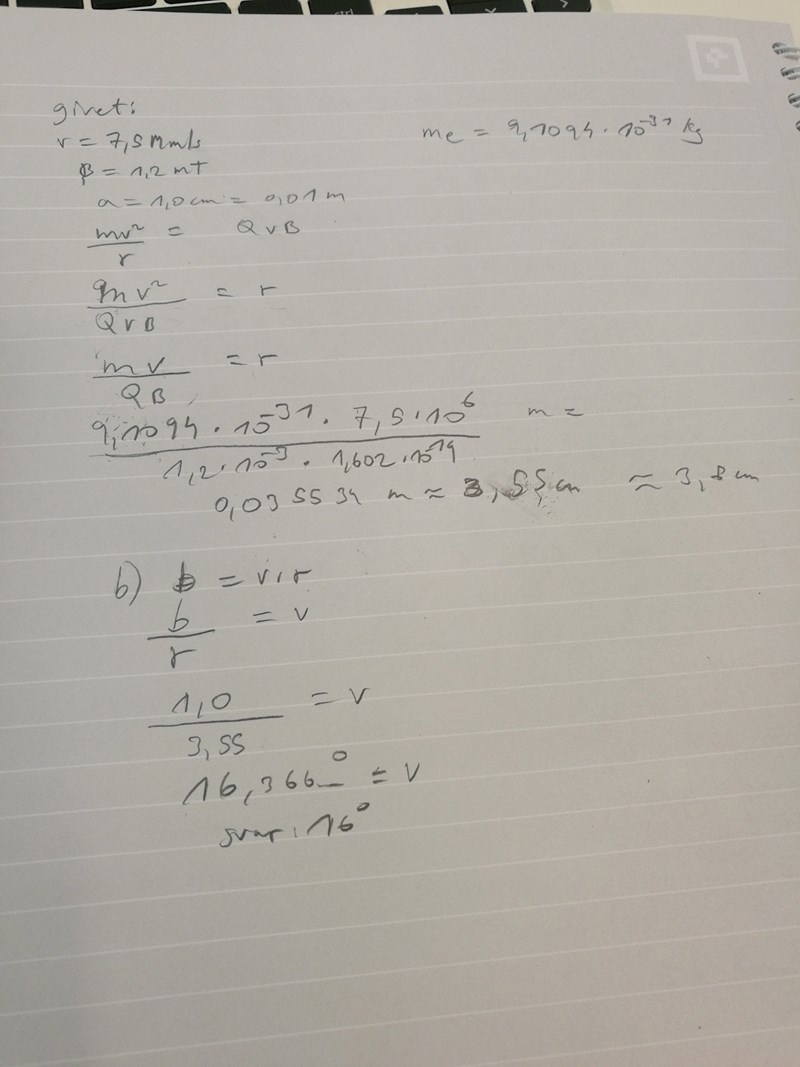 givet:
v = 7,5 Mm/s
me = 9,1094 · 10^-31 kg
B = 1,2 mT
a = 1,0 cm = 0,01 m
mv²/r = QvB
mv²/QvB = r
mv/QB = r
9,1094 · 10^-31 · 7,5 · 10^6 / 1,2 · 10^-3 · 1,602 · 10^-19 m =
0,035534 m ≈ 3,55 cm ≈ 3,6 cm
b) b = v · r
b/r = v
1,0/3,55 = v
16,366...° = v
svar: 16°